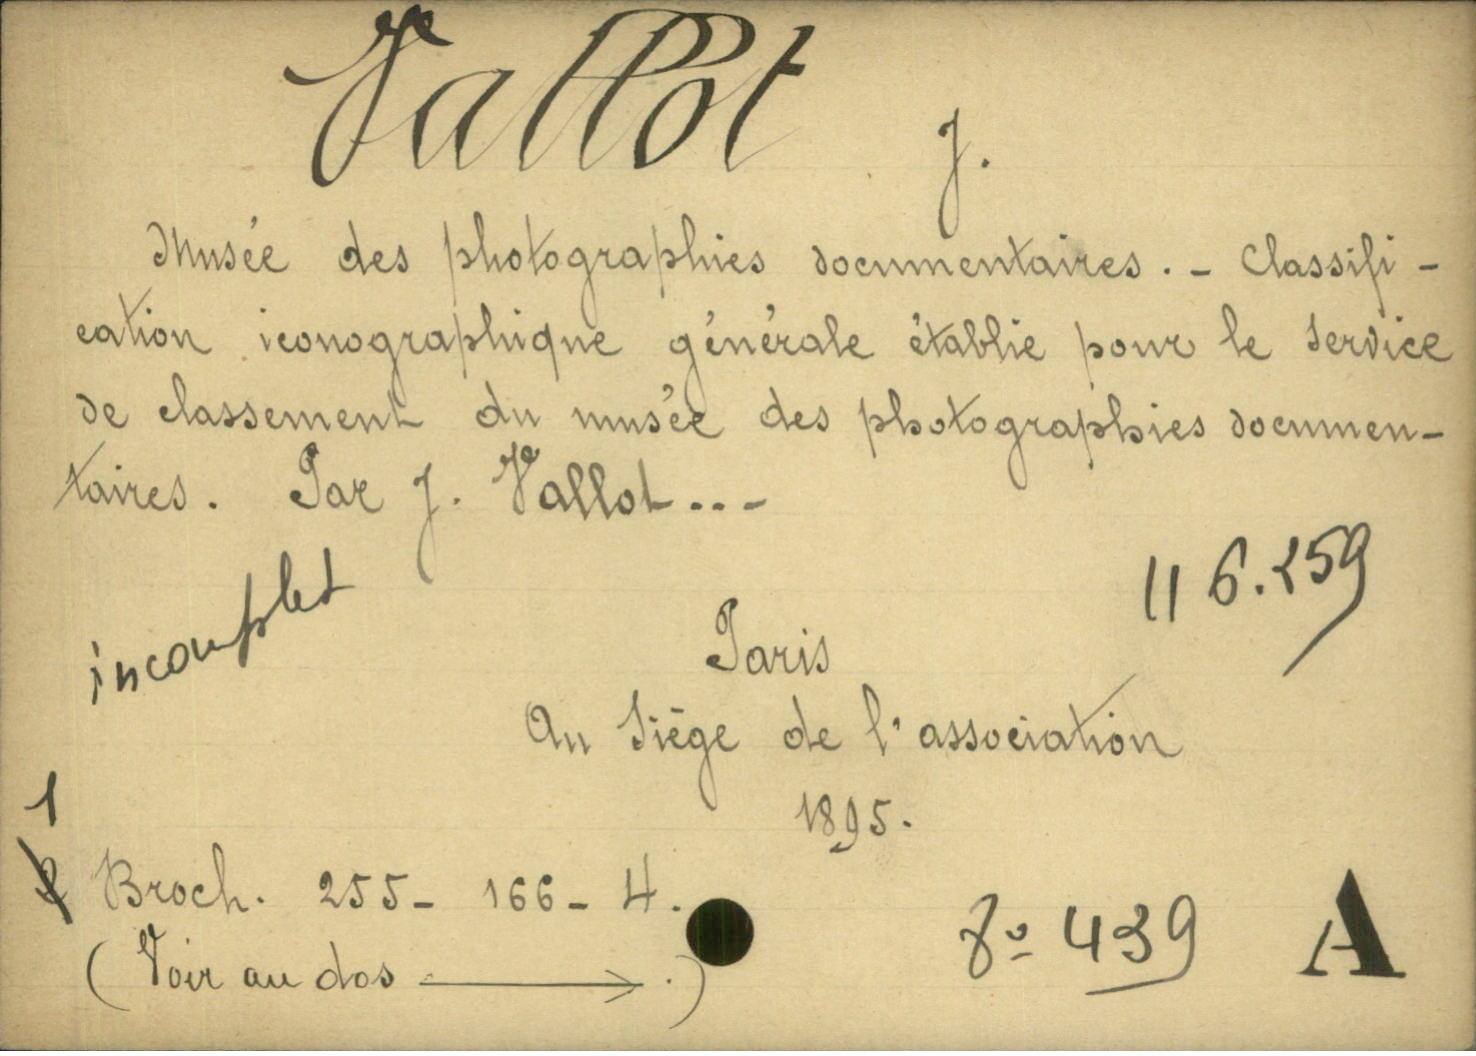 Vallot
J.
Musée des photographies documentaires. - Classifi-
cation iconographique générale établie pour le service
de classement du musée des photographies documen-
taires. Par J. Vallot...-
incomplet
116.259
Paris
Au Siège de l'association
1895.
1
Broch. 255- 166- 4.
(Voir au dos → .)
8º 439 A